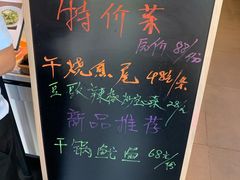 特价菜
原价 88/份
干烧鱼尾 48元/条
豆豉辣椒炒 28元
新品推荐
干锅鱿鱼 68元/份